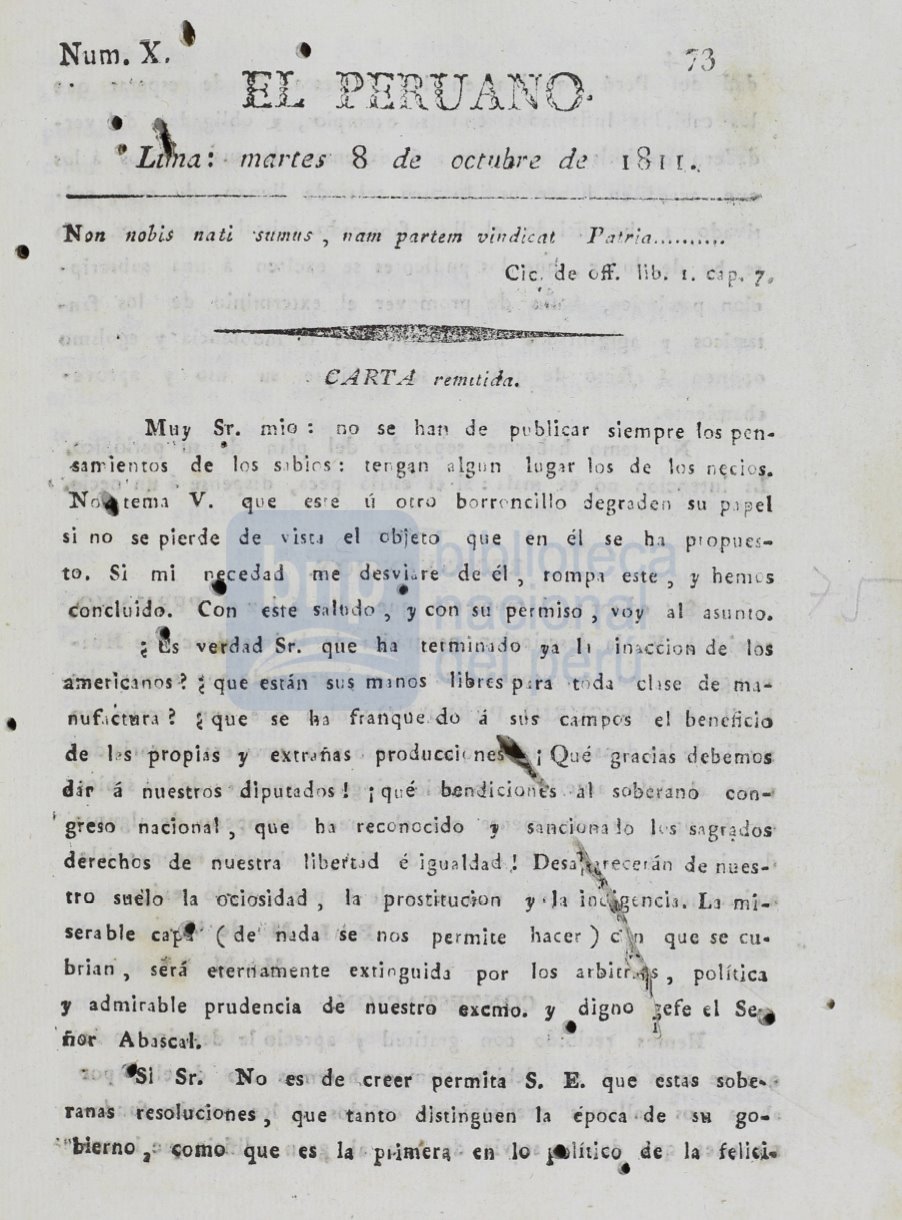 Num. X.
73
EL PERUANO.
Lima: martes 8 de octubre de 1811.
Non nobis nati sumus, nam partem vindicat Patria..........
Cic. de off. lib. 1. cap. 7.
CARTA remitida.
Muy Sr. mio: no se han de publicar siempre los pen-
samientos de los sabios: tengan algun lugar los de los necios.
No tema V. que este ú otro borroncillo degraden su papel
si no se pierde de vista el objeto que en él se ha propues-
to. Si mi necedad me desviare de él, rompa este, y hemos
concluido. Con este saludo, y con su permiso, voy al asunto.
¿Es verdad Sr. que ha terminado ya la inaccion de los
americanos? ¿que están sus manos libres para toda clase de ma-
nufactura? ¿que se ha franqueado á sus campos el beneficio
de las propias y extrañas producciones ¡Qué gracias debemos
dar á nuestros diputados! ¡qué bendiciones al soberano con-
greso nacional, que ha reconocido y sancionado los sagrados
derechos de nuestra libertad é igualdad! Desaparecerán de nues-
tro suelo la ociosidad, la prostitucion y la indigencia. La mi-
serable capa (de nada se nos permite hacer) con que se cu-
brian, será eternamente extinguida por los arbitrios, política
y admirable prudencia de nuestro excmo. y digno gefe el Se-
ñor Abascal.
Si Sr. No es de creer permita S. E. que estas sobe-
ranas resoluciones, que tanto distinguen la época de su go-
bierno, como que es la primera en lo político de la felici-
75
bnp biblioteca
nacional
del perú